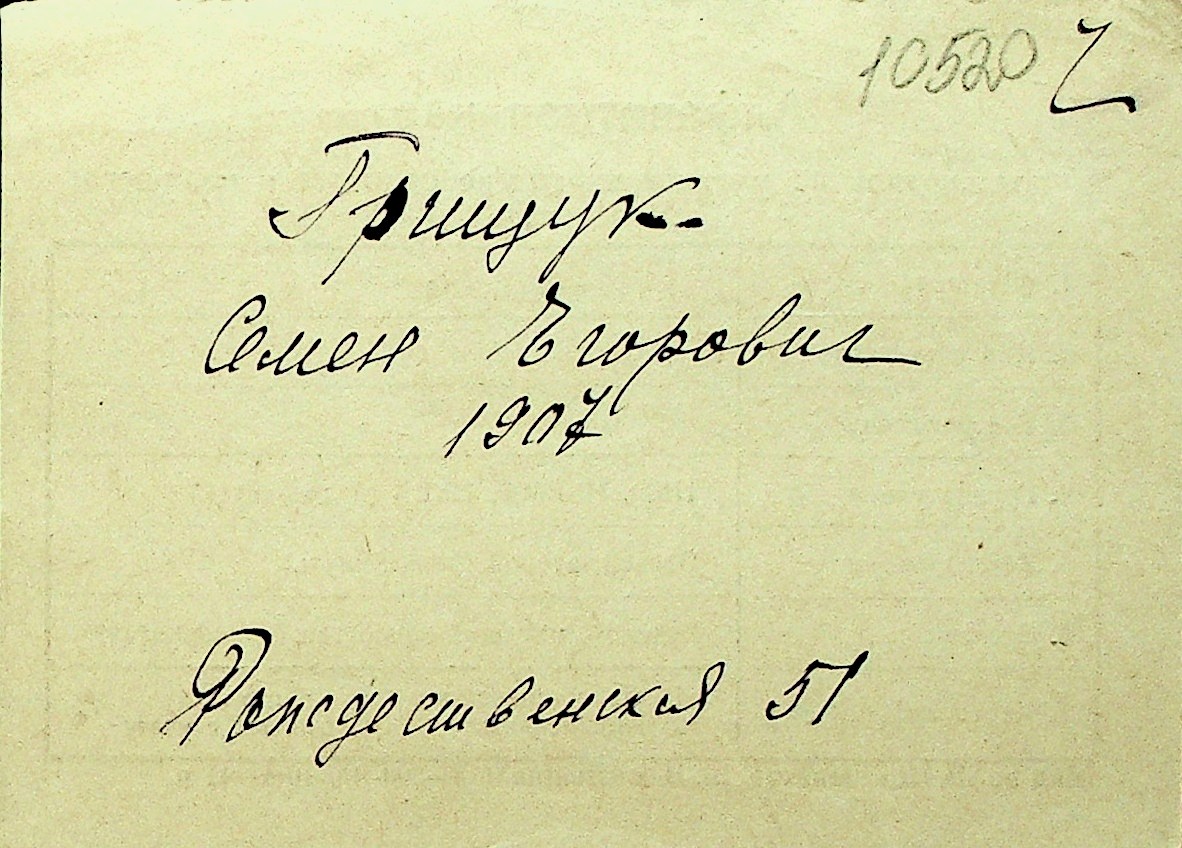 10520
Грищук
Семен Егорович
1907
Рождественская 51